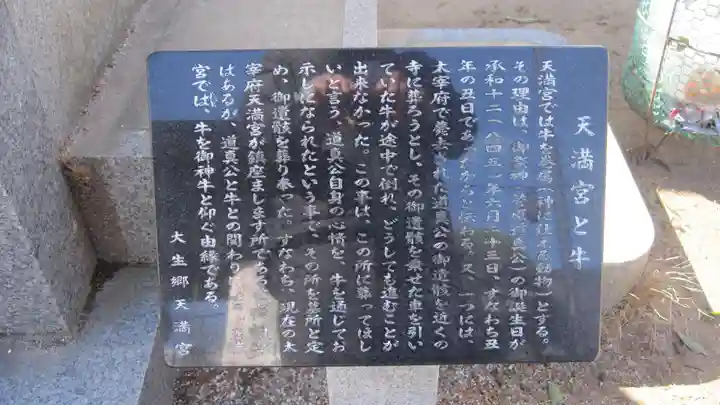 天満宮と牛
天満宮では牛を眷属(神に仕える動物)とする。
その理由は、御祭神(菅原道真公)の御誕生日が
承和十二(八四五)年六月二十三日、すなわち丑
年の丑日であったからと伝わる。又、一つには、
太宰府で薨去された道真公の御遺骸を近くの
寺に葬ろうとし、その御遺骸を乗せた車を引い
ていた牛が途中で倒れ、どうしても進むことが
出来なかった。この事は、この所に葬ってほし
いと言う、道真公自身の心情を、牛を通してお
示しになられたという事で、その所を墓所と定
め、御遺骸を葬り奉った。すなわち、現在の太
宰府天満宮が鎮座まします所である。
はあるが、道真公と牛との関わり
宮では、牛を御神牛と仰ぐ由縁である。
大生郷天満宮